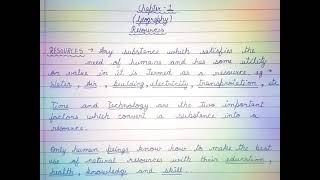 Chapter - 1
(Geography)
Resources
RESOURCES → Any substance which satisfies the
need of humans and has some utility
or value in it is termed as a resource. eg →
Water, Air, building, electricity, transpiration, etc
Time and Technology are the two important
factors which convert a substance into a
resource.
Only human beings know how to make the best
use of natural resources with their education,
health, knowledge and skill.